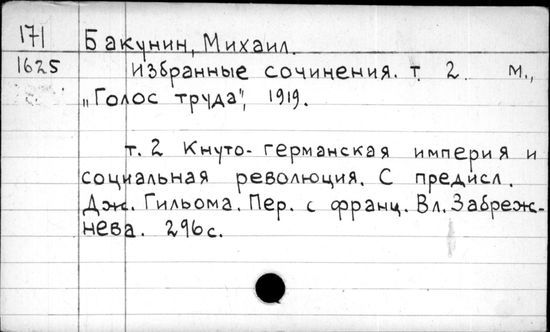 171
1625
Бакунин, Михаил.
Избранные сочинения. т. 2. М.,
„Голос труда", 1919.
т. 2 Кнуто-германская империя и
социальная революция. С предисл.
Дж. Гильома. Пер. с франц. Вл. Забреж-
нева. 296с.